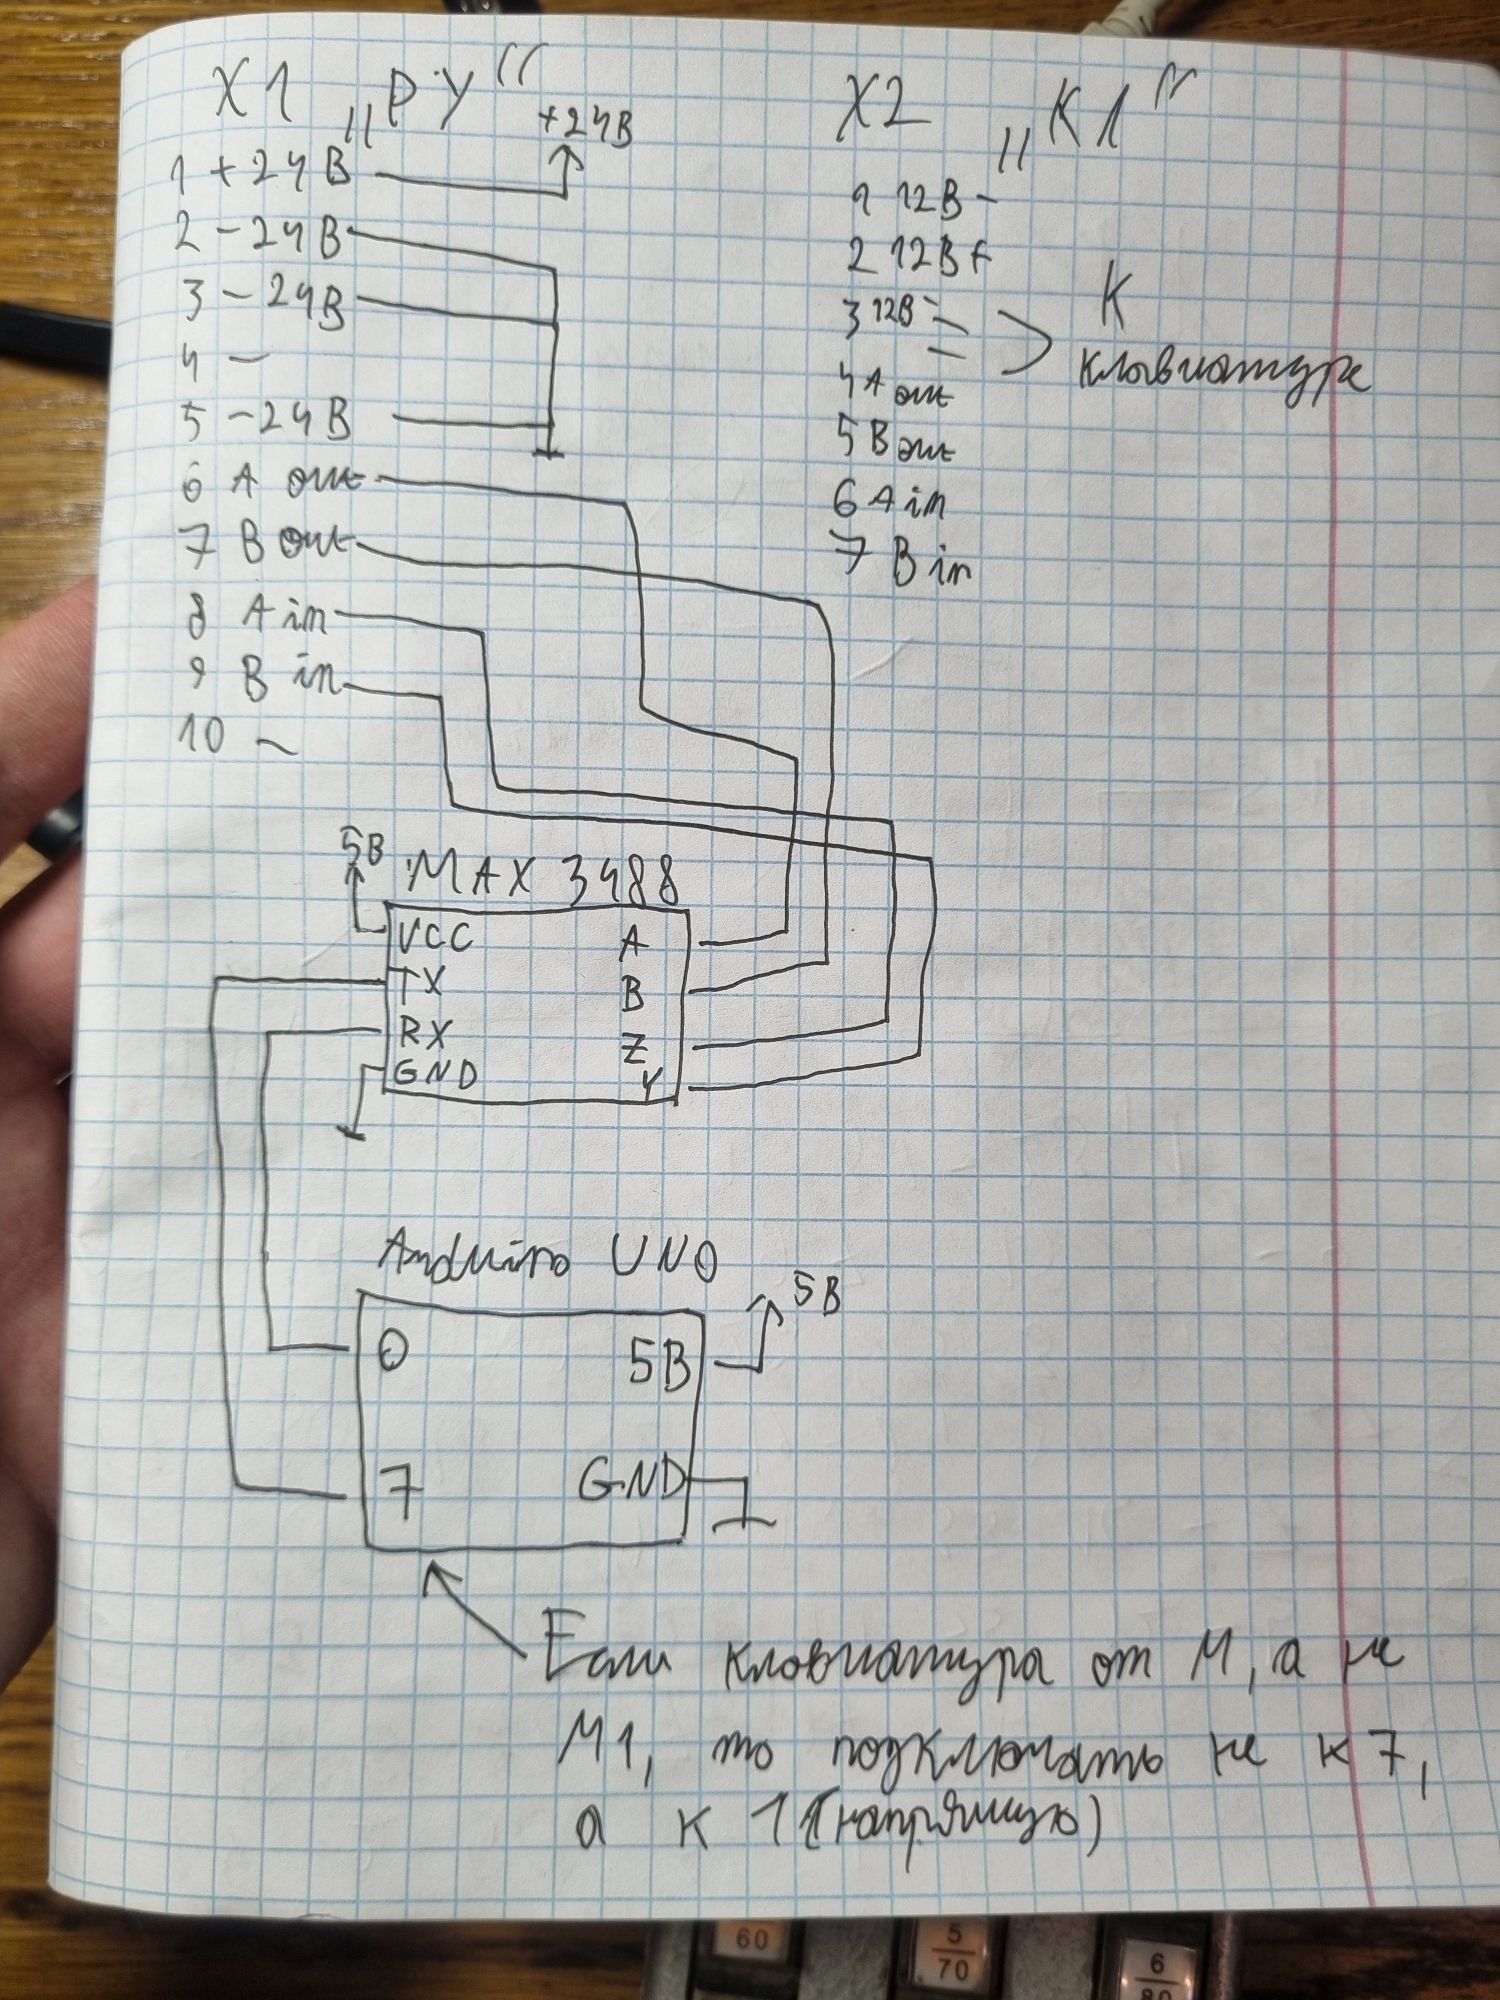 X1 „РУ“
+24В
1 +24В
2 -24В
3 -24В
4 —
5 -24В
6 A out
7 B out
8 A in
9 B in
10 —
X2 „К1“
1 12В -
2 12В +
3 12В -
4 A out
5 B out
6 A in
7 B in
К
клавиатуре
5В
MAX 3488
VCC
TX
RX
GND
A
B
Z
Y
Arduino UNO
0
7
5В
GND
5В
Если клавиатура от М, а не
М1, то подключать не к 7,
а к 1 (напрямую)
60
5
70
6
80